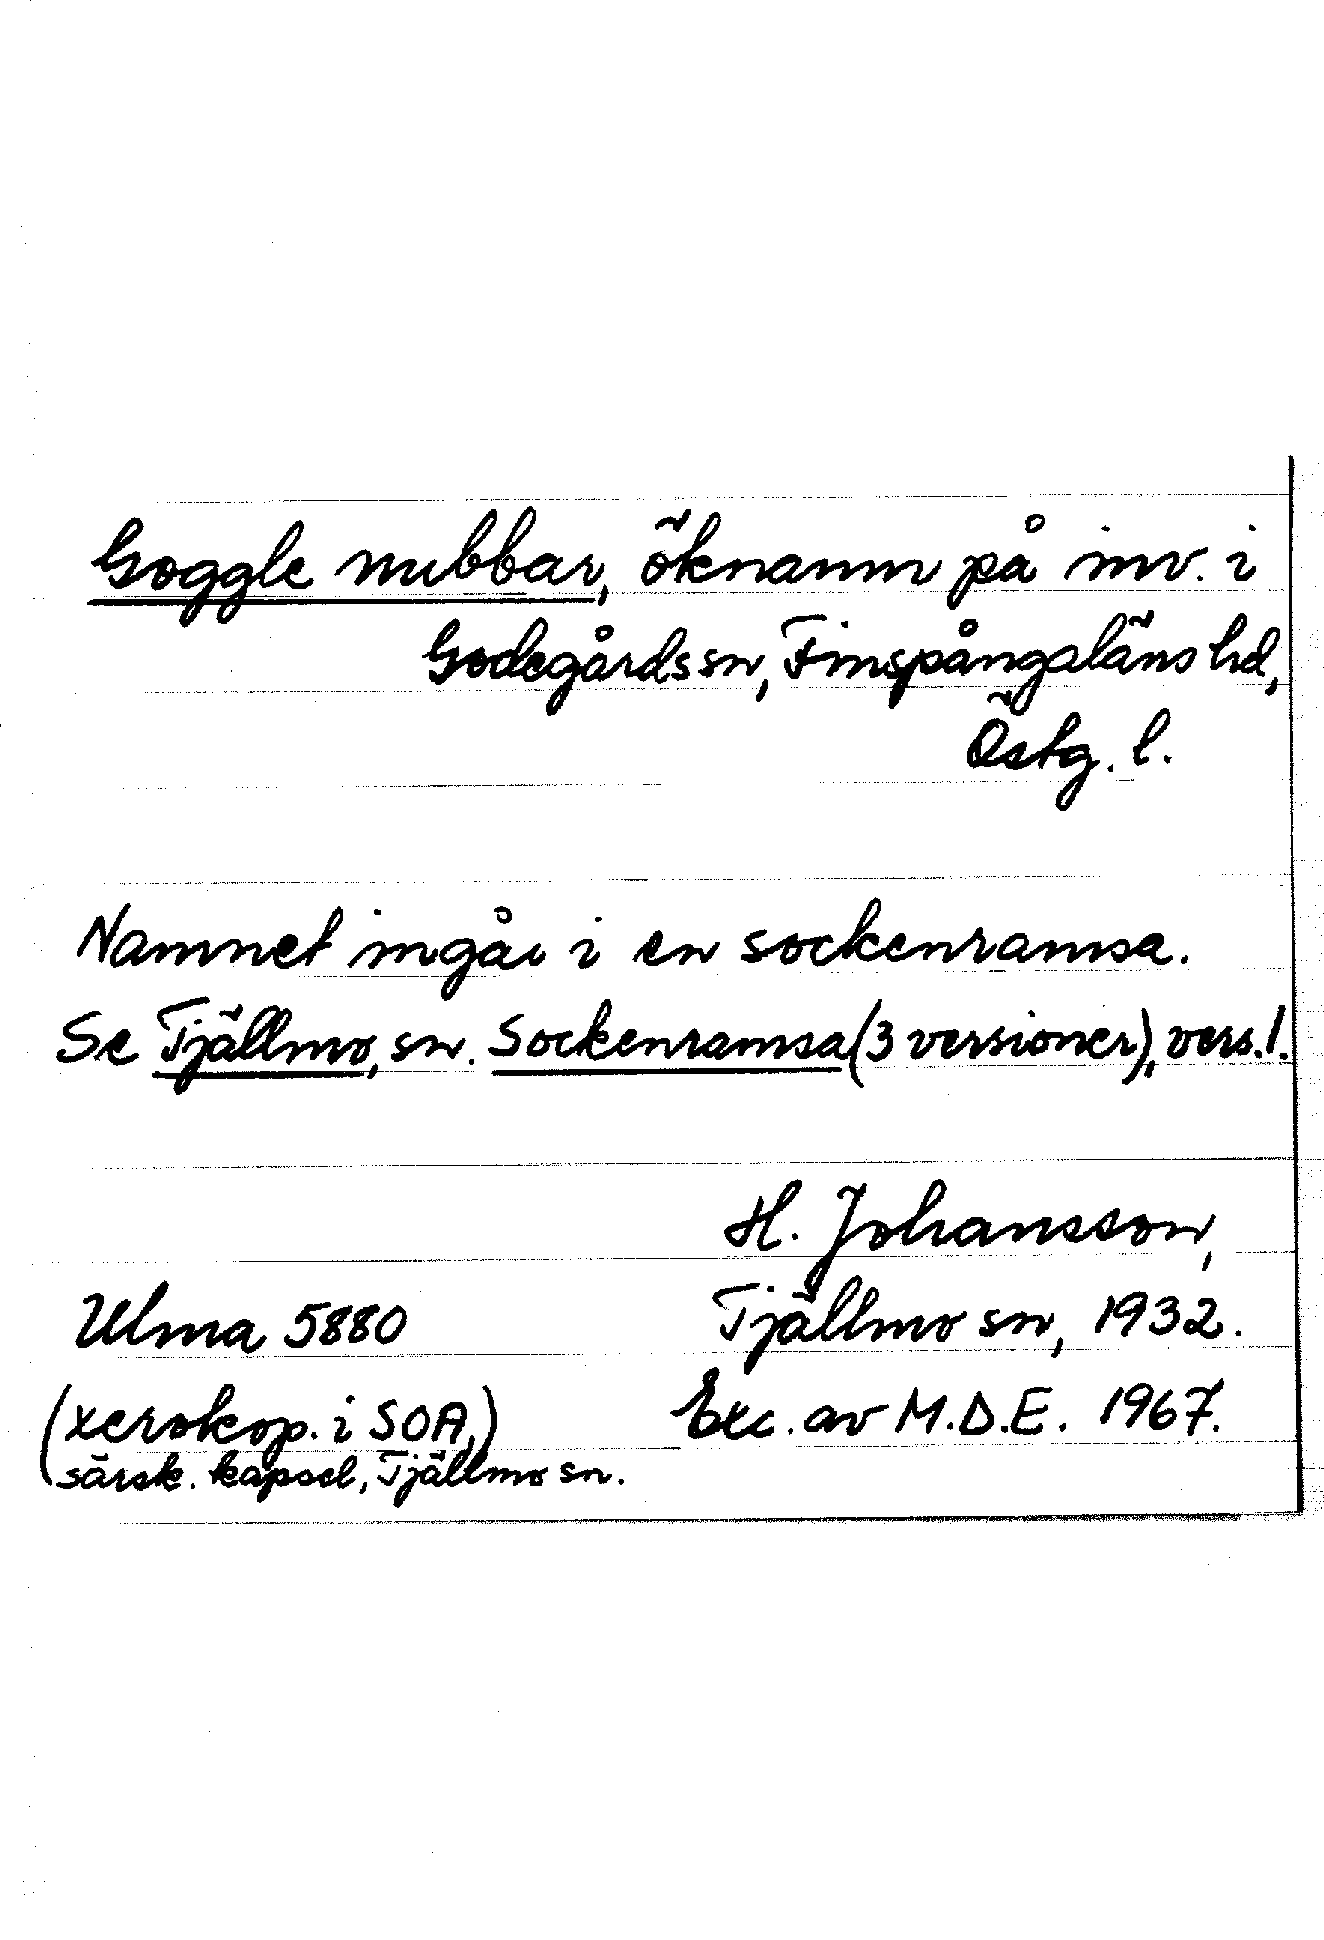 Goggle nubbar, öknamn på inv. i
Godegårds sn, Finspångaläns hd,
Östg. l.
Namnet ingår i en sockenramsa.
Se Tjällmo, sn. Sockenramsa (3 versioner), vers. 1.
H. Johansson,
Ulma 5880 Tjällmo sn, 1932.
(xerokop. i SOA,) Exc. av M.D.E. 1967.
särsk. kapsel, Tjällmo sn.